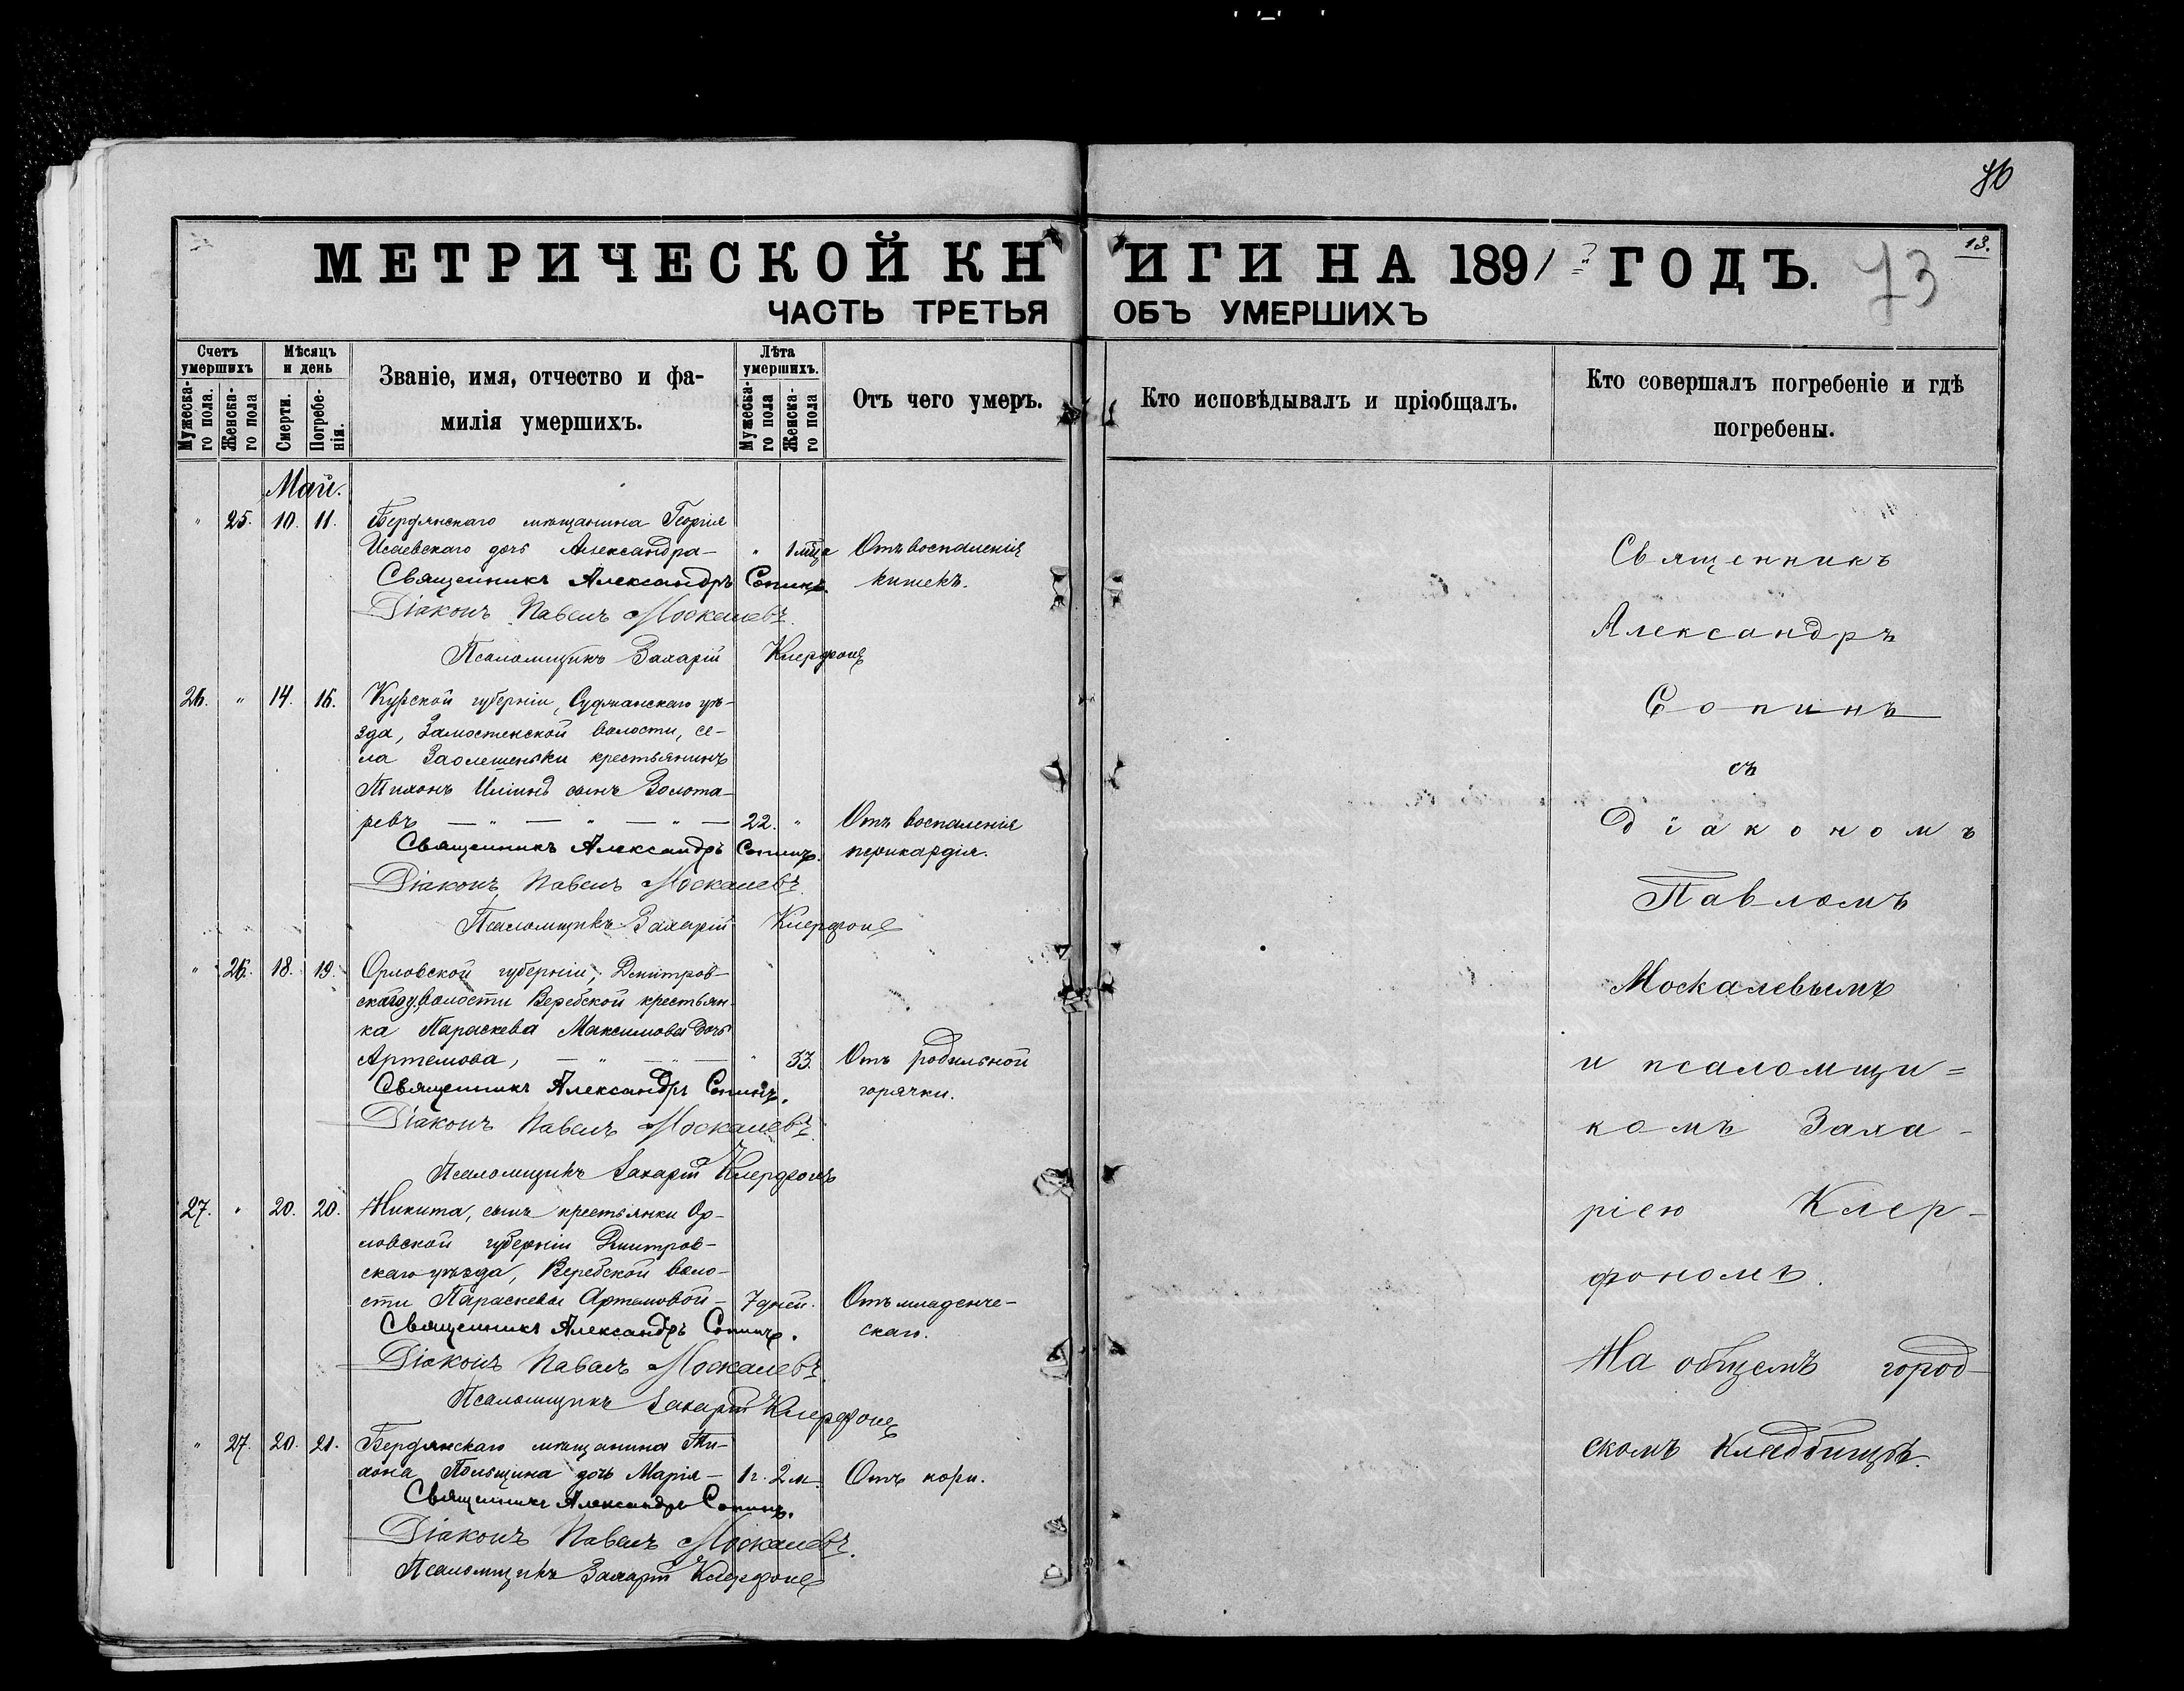 МЕТРИЧЕСКОЙ КНИГИ НА 1891 ГОДЪ.
ЧАСТЬ ТРЕТЬЯ ОБЪ УМЕРШИХЪ
13.
73
Счетъ умершихъ
Мужеска-го пола.
Женска-го пола
Мѣсяцъ и день
Смерти.
Погребе-нія.
Званіе, имя, отчество и фа-
милія умершихъ.
Лѣта умершихъ.
Мужеска-го пола
Женска-го пола
Отъ чего умеръ.
Кто исповѣдывалъ и пріобщалъ.
Кто совершалъ погребеніе и гдѣ
погребены.
Май.
" 25. 10. 11. Бердянскаго мѣщанина Георгія
Исаевскаго дочь Александра – " 1 мѣс Отъ воспаленія
Священникъ Александръ Сопинъ. кишекъ.
Діаконъ Павелъ Москалевъ.
Псаломщикъ Захарій Клерфонъ
26. " 14. 16. Курской губерніи, Суджанскаго уѣ-
зда, Замостенской волости, се-
ла Заолешеньки крестьянинъ
Тихонъ Иліинъ сынъ Золота-
ревъ — " — " — " — 22. " Отъ воспаленія
Священникъ Александръ Сопинъ. перикардія.
Діаконъ Павелъ Москалевъ.
Псаломщикъ Захарій Клерфонъ
" 26. 18. 19. Орловской губерніи, Дмитров-
скаго у. волости Веребской крестьян-
ка Параскева Максимова дочь
Артемова, — " — " — " 33. Отъ родильной
Священникъ Александръ Сопинъ. горячки.
Діаконъ Павелъ Москалевъ.
Псаломщикъ Захарій Клерфонъ
27. " 20. 20. Никита, сынъ крестьянки Ор-
ловской губерніи Дмитров-
скаго уѣзда, Веребской воло-
сти Параскевы Артемовой – 7 дней. Отъ младенче-
Священникъ Александръ Сопинъ. скаго.
Діаконъ Павелъ Москалевъ.
Псаломщикъ Захарій Клерфонъ
" 27. 20. 21. Бердянскаго мѣщанина Ти-
хона Польщина дочь Марія – 1 г. 2 м. Отъ кори.
Священникъ Александръ Сопинъ.
Діаконъ Павелъ Москалевъ.
Псаломщикъ Захарій Клерфонъ
Священникъ
Александръ
Сопинъ
съ
Діакономъ
Павломъ
Москалевымъ
и псаломщи=
комъ Заха-
ріею Клер-
фономъ.
На общемъ город-
скомъ кладбищѣ.